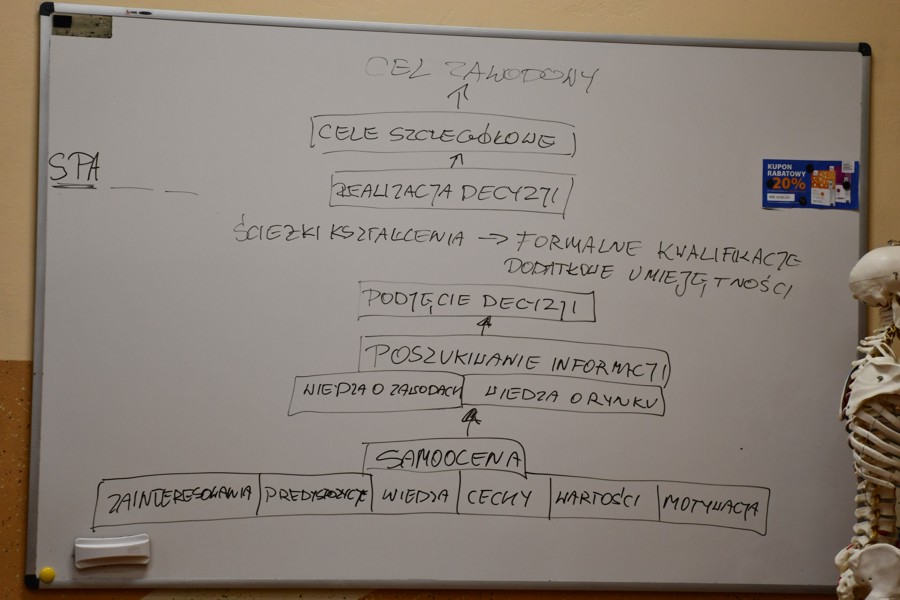 CEL ZAWODOWY
CELE SZCZEGÓŁOWE
SPA
REALIZACJA DECYZJI
ŚCIEZKI KSZTAŁCENIA → FORMALNE KWALIFIKACJE
DODATKOWE UMIEJĘTNOŚCI
PODJĘCIE DECYZJI
POSZUKIWANIE INFORMACJI
WIEDZA O ZAWODACH WIEDZA O RYNKU
SAMOOCENA
ZAINTERESOWANIA PREDYSPOZYCJE WIEDZA CECHY WARTOŚCI MOTYWACJA
KUPON
RABATOWY
20%